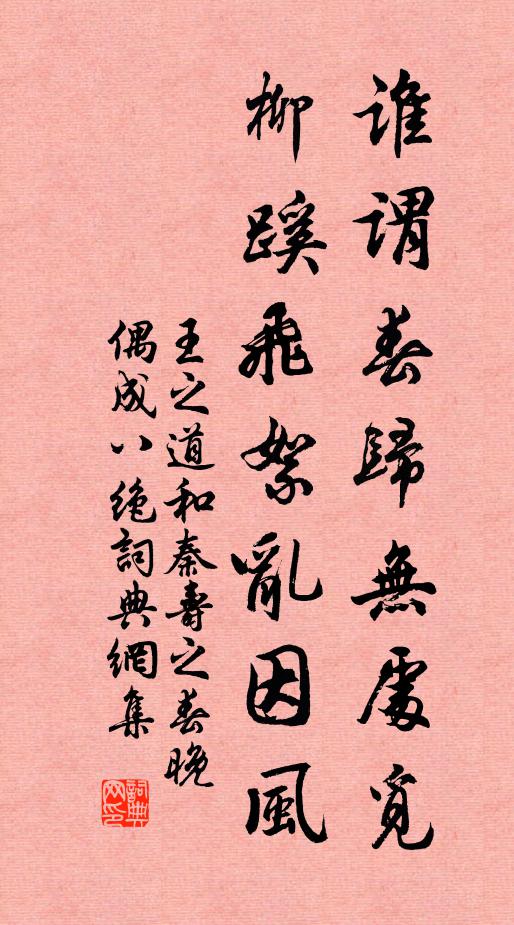 誰謂春歸無處覓
柳蹊飛絮亂因風
王之道和秦壽之春晚
偶成八絶詞典網集
詞典
网印